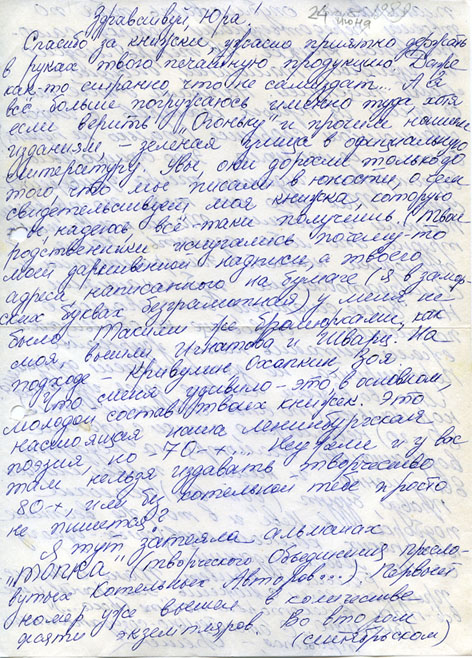 Здравствуй, Юра!
24 июня 1989
Спасибо за книжки, ужасно приятно держать
в руках твою печатную продукцию. Даже
как-то странно, что не самиздат... А я
всё больше погружаюсь именно туда, хотя
если верить "Огоньку" и прочим нашим
изданиям, – зеленая улица в официальную
литературу. Увы, они доросли только до
того, что мы писали в юности, о чем
свидетельствует моя книжка, которую
надеюсь всё-таки получишь (твои
родственники испугались почему-то
моей дарственной надписи, а твоего
адреса, написанного на бумаге (я в
ских буквах безграмотная) у меня не
было. Такими же брошюрками, как
моя, вышли Игнатова и Шварц. На
подходе – Кривулин, Охапкин, Зоя.
Что меня удивило – это, в основном,
молодой состав твоих книжек. Это
настоящая наша ленинградская
поэзия, но 70-х... Неужели и у вас
там нельзя издавать творчество
80-х, или без котельной тебе просто
не пишется?
Я тут затеяла альманах
"Топка" (творческого Объединения преслo-
вутых Котельных Авторов...). Первый
номер уже вышел в количестве
экземпляров. Во втором
(сентябрьском)